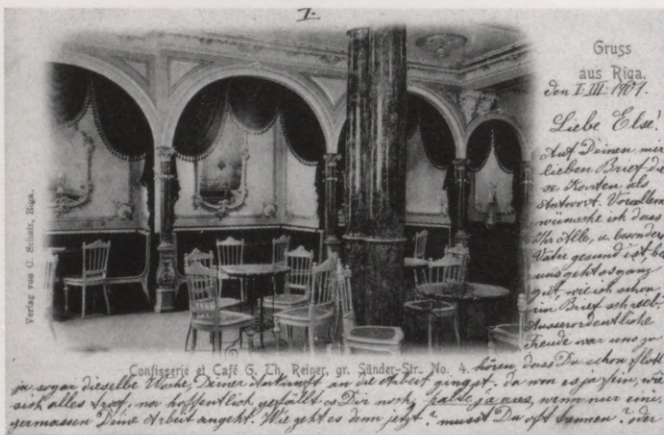 I.
Gruss
aus Riga.
den I. III. 1901.
Liebe Else!
Auf Deinen mir
lieben Brief die
se Karten als
Antwort. Vor allem
wünsche ich dass
Ihr Alle, u. besonders
Vater gesund ist, bei
uns geht es ganz
gut, wie ich schon
im Brief schrieb.
Ausserordentliche
Freude war uns zu
hören, dass Du schon flott
ja sogar dieselbe Woche Deiner Ankunft an die Arbeit gingst, da war es ja fein, wie
sich alles traf, na hoffentlich gefällt es Dir noch, halte ja aus, wenn nur eini
germassen Deine Arbeit angeht. Wie geht es denn jetzt? musst Du oft oder
Confisserie et Café G. Th. Reiner, gr. Sünder-Str. No. 4.
Verlag von C. Schulz, Riga.